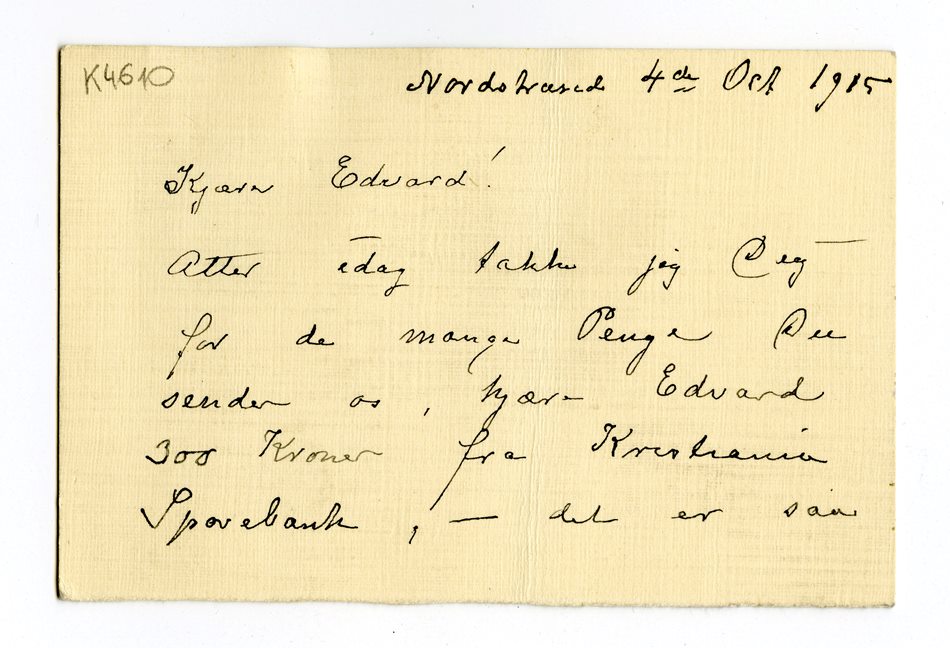 K4610
Nordstrand 4de Oct 1915
Kjære Edvard!
Atter idag takke jeg Deg
for de mange Penge Du
sender os, kjære Edvard
300 Kroner fra Kristiania
Sparebank, — det er saa